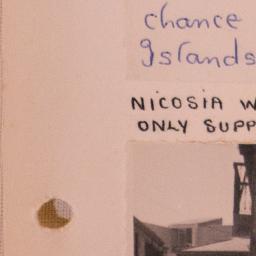 chance
Islands
NICOSIA W
ONLY SUPP